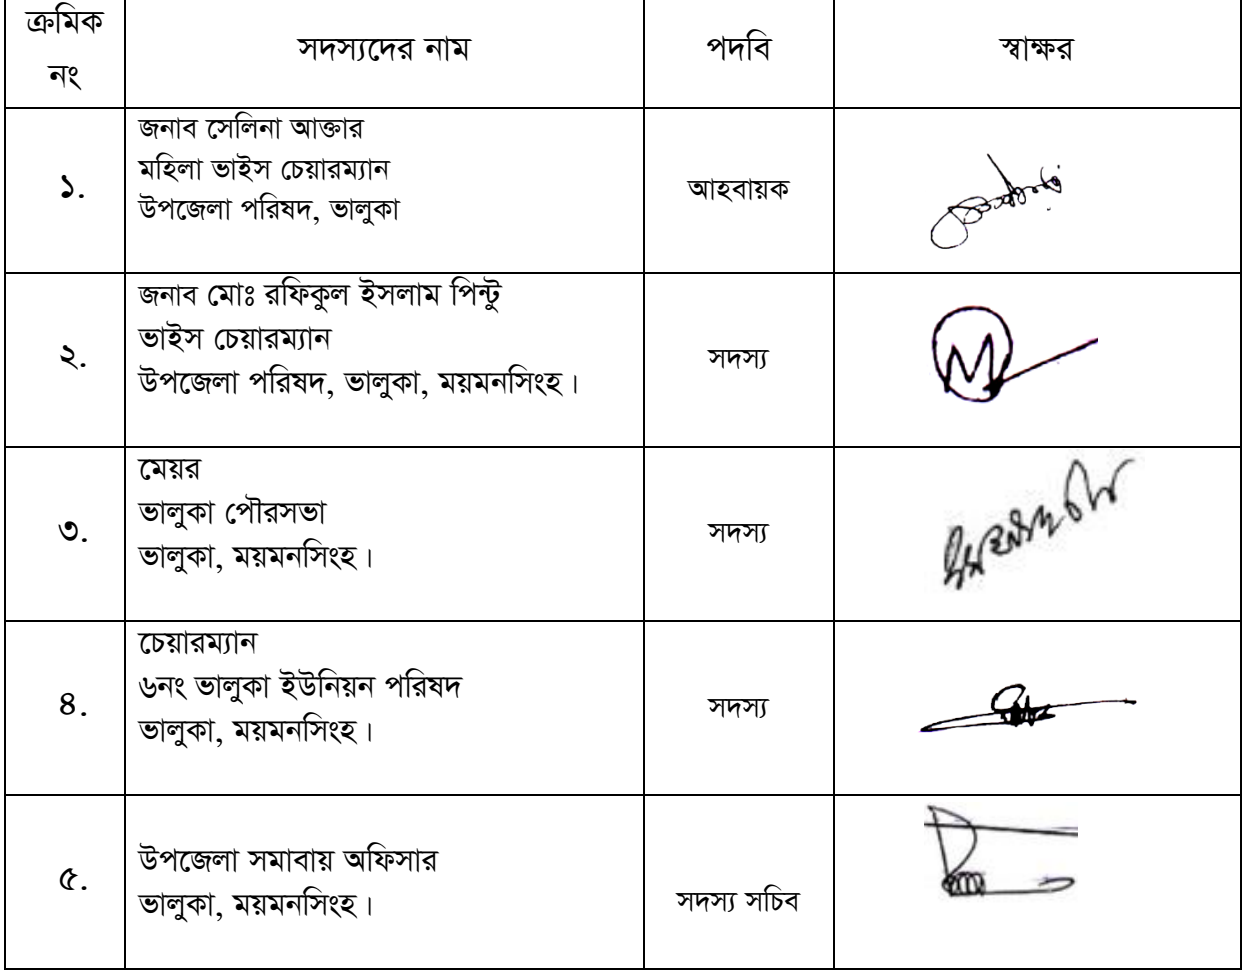 ক্রমিক
নং
সদস্যদের নাম
পদবি
স্বাক্ষর
১.
জনাব সেলিনা আক্তার
মহিলা ভাইস চেয়ারম্যান
উপজেলা পরিষদ, ভালুকা
আহবায়ক
২.
জনাব মোঃ রফিকুল ইসলাম পিন্টু
ভাইস চেয়ারম্যান
উপজেলা পরিষদ, ভালুকা, ময়মনসিংহ।
সদস্য
৩.
মেয়র
ভালুকা পৌরসভা
ভালুকা, ময়মনসিংহ।
সদস্য
৪.
চেয়ারম্যান
৬নং ভালুকা ইউনিয়ন পরিষদ
ভালুকা, ময়মনসিংহ।
সদস্য
৫.
উপজেলা সমাবায় অফিসার
ভালুকা, ময়মনসিংহ।
সদস্য সচিব